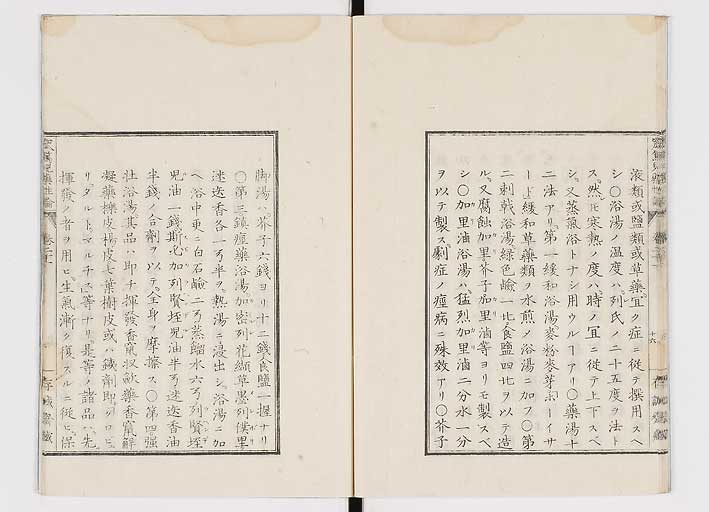 液類或鹽類或草藥宜ク症ニ從テ撰用スヘ
シ○浴湯ノ温度ハ列氏ノ二十五度ヲ法ト
ス然𪜈寒熱ノ度ハ時ノ冝ニ從テ上下スベ
シ又蒸氣浴トナシ用ウルヿアリ○藥湯十
二法アリ第一緩和浴湯麥粉麥芽ホーイサ
ード緩和草藥類ヲ水煎ノ浴湯ニ加フ○第
二刺戟浴湯綠色鹼一
食鹽四
ヲ以テ造
ル又腐蝕加里芥子加里滷等ヨリモ製スベ
シ○加里滷浴湯ハ猛烈加里滷二分水一分
ヲ以テ製ス劇症ノ瘧病ニ殊效アリ○芥子
十六
脚湯ハ芥子六錢ヨリ十二錢食鹽一握ナリ
○第三鎮痙藥浴湯加密列花纈草墨列僕里
迷迭香各一丐半ヲ熱湯ニ浸出シ浴湯ニ加
ヘ浴中更ニ白石鹼二丐蒸餾水六丐列賢垤
児油一錢斯
加列賢垤児油半丐迷迭香油
半錢ノ合劑ヲ以テ全身ヲ摩擦ス○第四強
壮浴湯其品ハ即チ揮發香竄収歛藥香竄解
凝藥檞皮楊皮七葉樹皮或ハ鐵劑即グロビ
リダルトマルチス等ナリ是等ノ諸品ハ先
揮發ノ者ヲ用ヒ生氣漸ク復スルニ從ヒ保